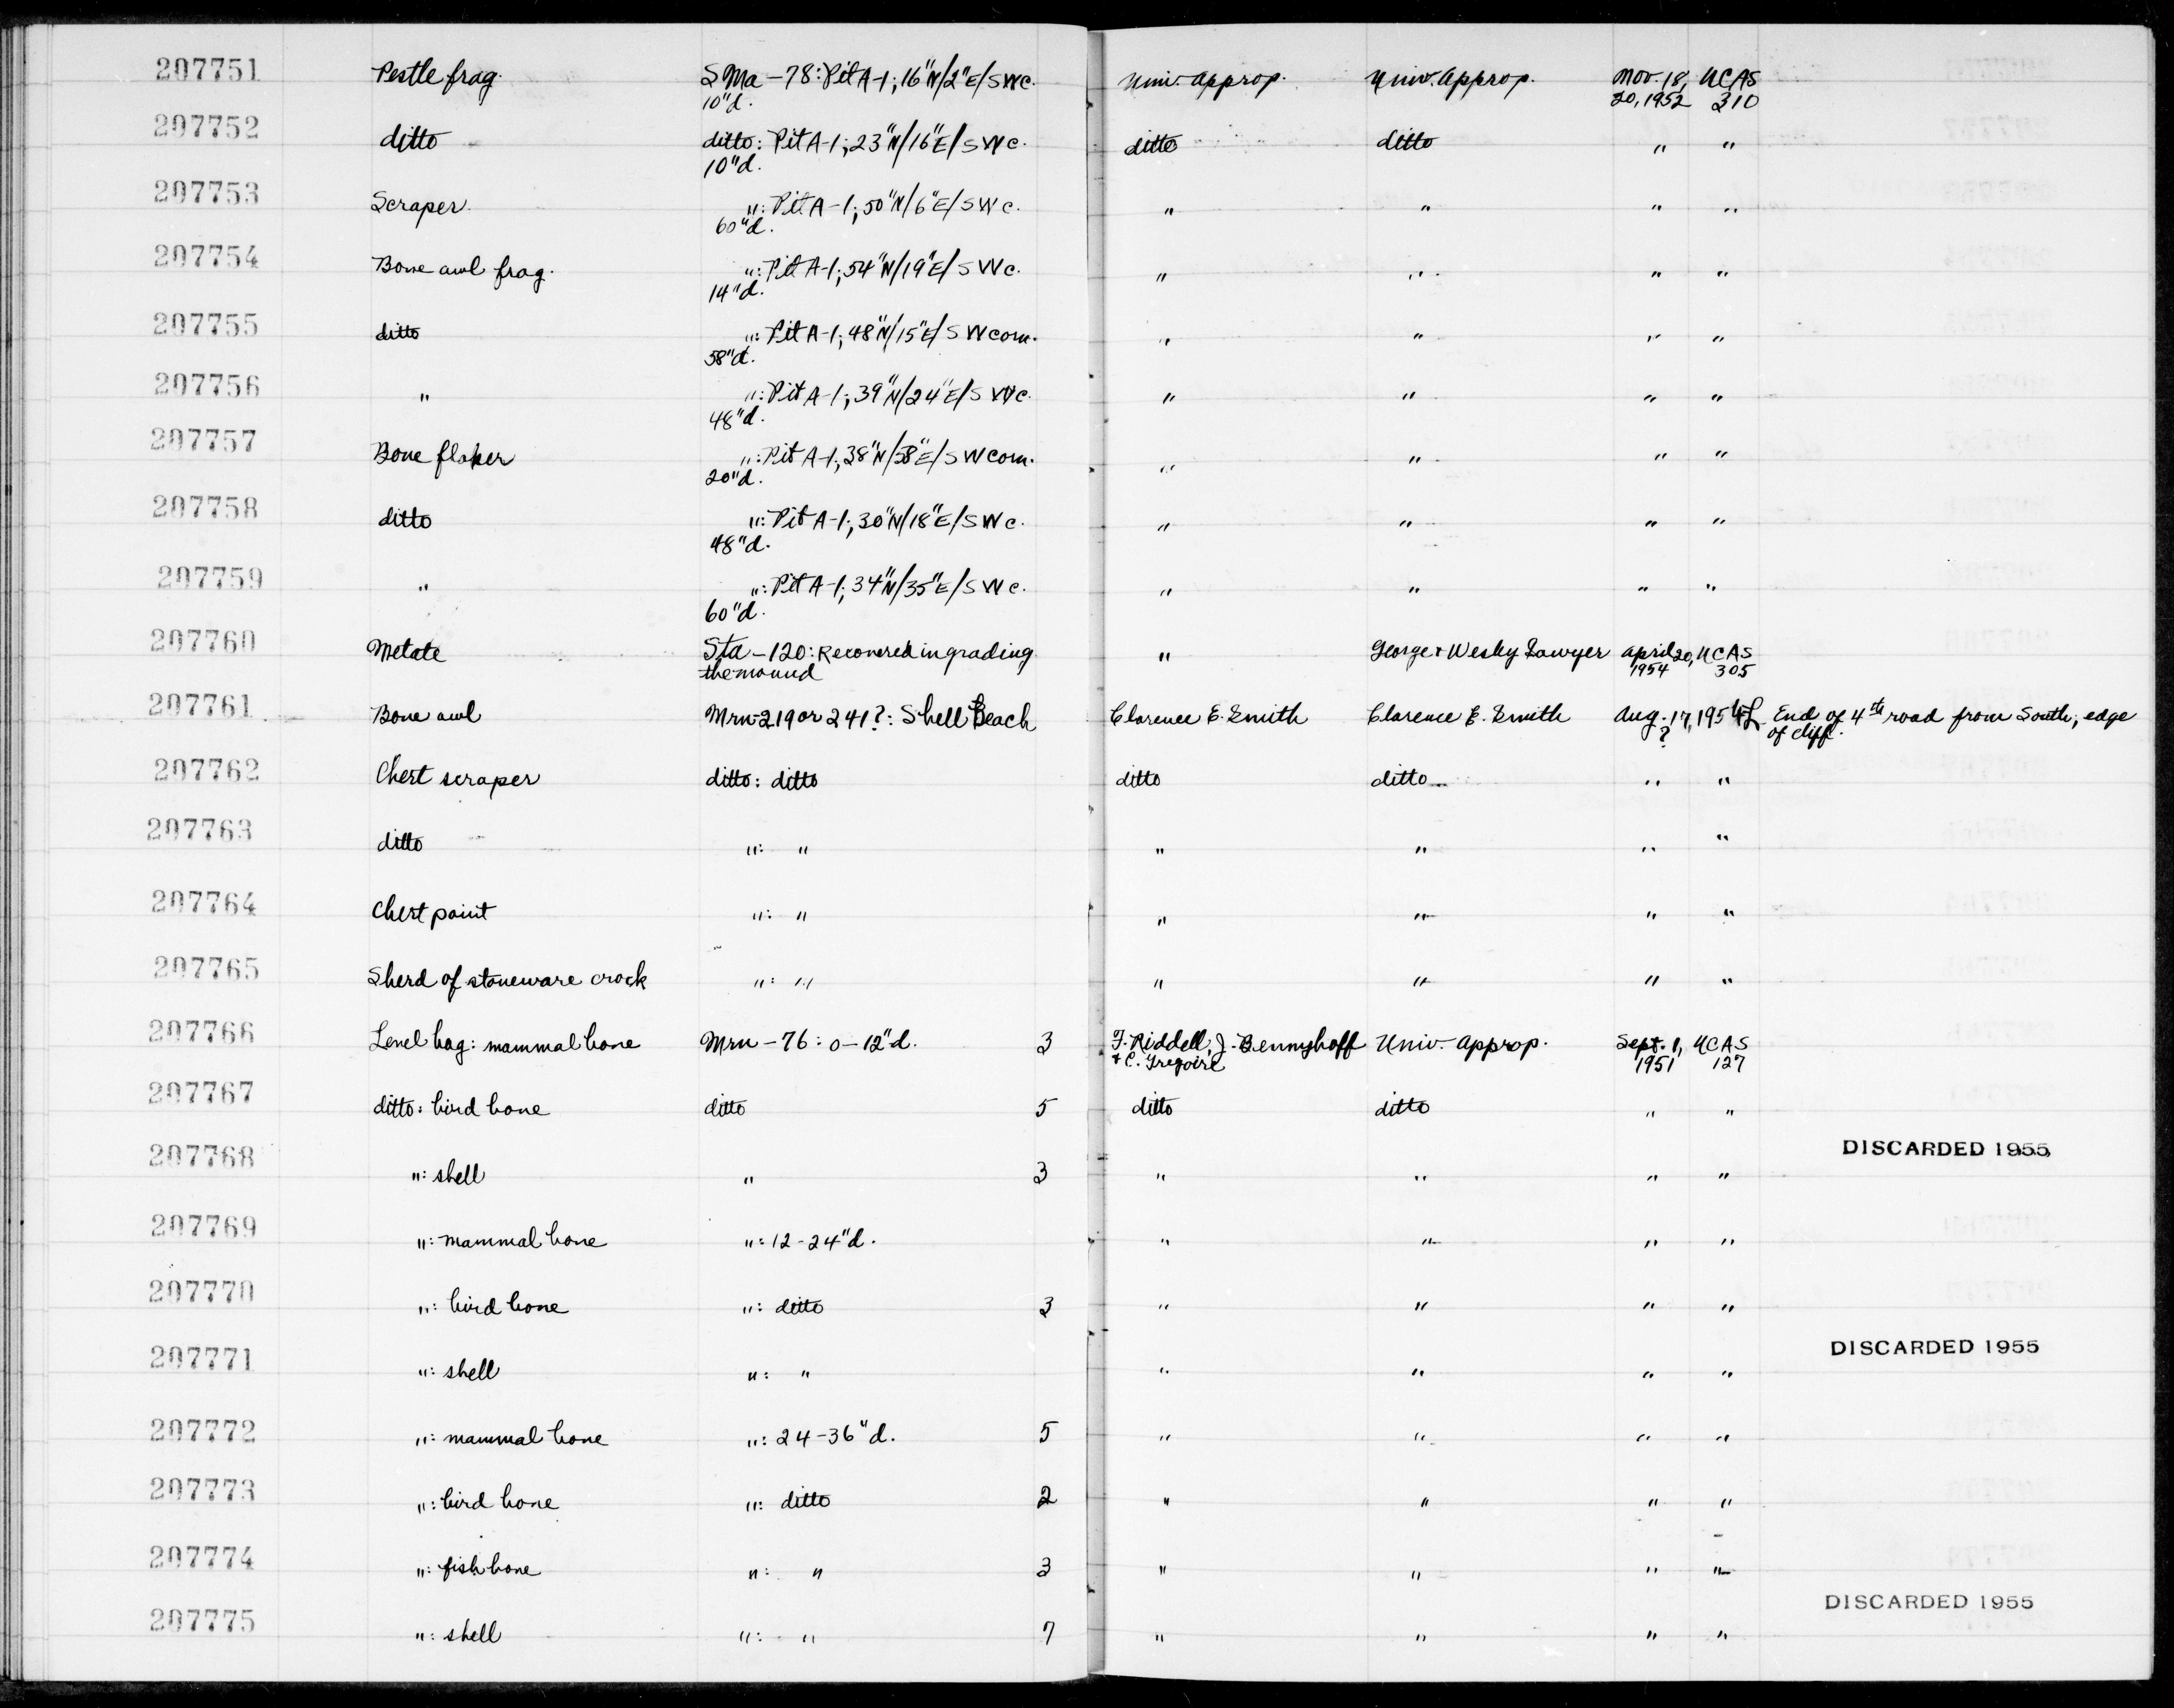 207751 Pestle frag. SMa-78: Pit A-1; 16"N/2"E/SWc. Univ. approp. Univ. approp. Nov. 18, UCAS
10"d. 20, 1952 310
207752 ditto ditto: Pit A-1; 23"N/16"E/SWc. ditto ditto " "
10"d.
207753 Scraper. ": Pit A-1; 50"N/6"E/SWc. " " " "
60"d.
207754 Bone awl frag. ": Pit A-1; 54"N/19"E/SWc. " " " "
14"d.
207755 ditto ": Pit A-1; 48"N/15"E/SWcorn. " " " "
58"d.
207756 " ": Pit A-1; 39"N/24"E/SWc. " " " "
48"d.
207757 Bone flaker ": Pit A-1; 38"N/58"E/SWcorn. " " " "
20"d.
207758 ditto ": Pit A-1; 30"N/18"E/SWc. " " " "
48"d.
207759 " ": Pit A-1; 34"N/35"E/SWc. " " " "
60"d.
207760 Metate Sta-120: Recovered in grading " George & Wesley Sawyer April 20, UCAS
the mound 1954 305
207761 Bone awl Mrn-219 or 241?: Shell Beach Clarence E. Smith Clarence E. Smith Aug. 17, 1954 End of 4th road from South; edge
? of cliff.
207762 Chert scraper ditto: ditto ditto ditto " "
207763 ditto ": " " " " "
207764 Chert point ": " " " " "
207765 Sherd of stoneware crock ": " " " " "
207766 Level bag: mammal bone Mrn-76: 0-12"d. 3 F. Riddell, J. Bennyhoff Univ. approp. Sept. 1, UCAS
& C. Gregoire 1951 127
207767 ditto: bird bone ditto 5 ditto ditto " "
207768 ": shell " 3 " " " " DISCARDED 1955
207769 ": mammal bone ": 12-24"d. " " " "
207770 ": bird bone ": ditto 3 " " " "
207771 ": shell ": " " " " " DISCARDED 1955
207772 ": mammal bone ": 24-36"d. 5 " " " "
207773 ": bird bone ": ditto 2 " " " "
207774 ": fish bone ": " 3 " " " "
207775 ": shell ": " 7 " " " " DISCARDED 1955